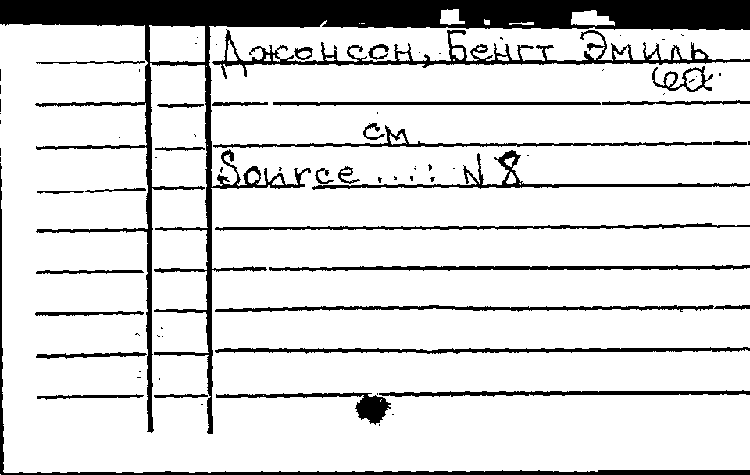 Джонсон, Бенгт Эмиль
см.
Source ...: N 8